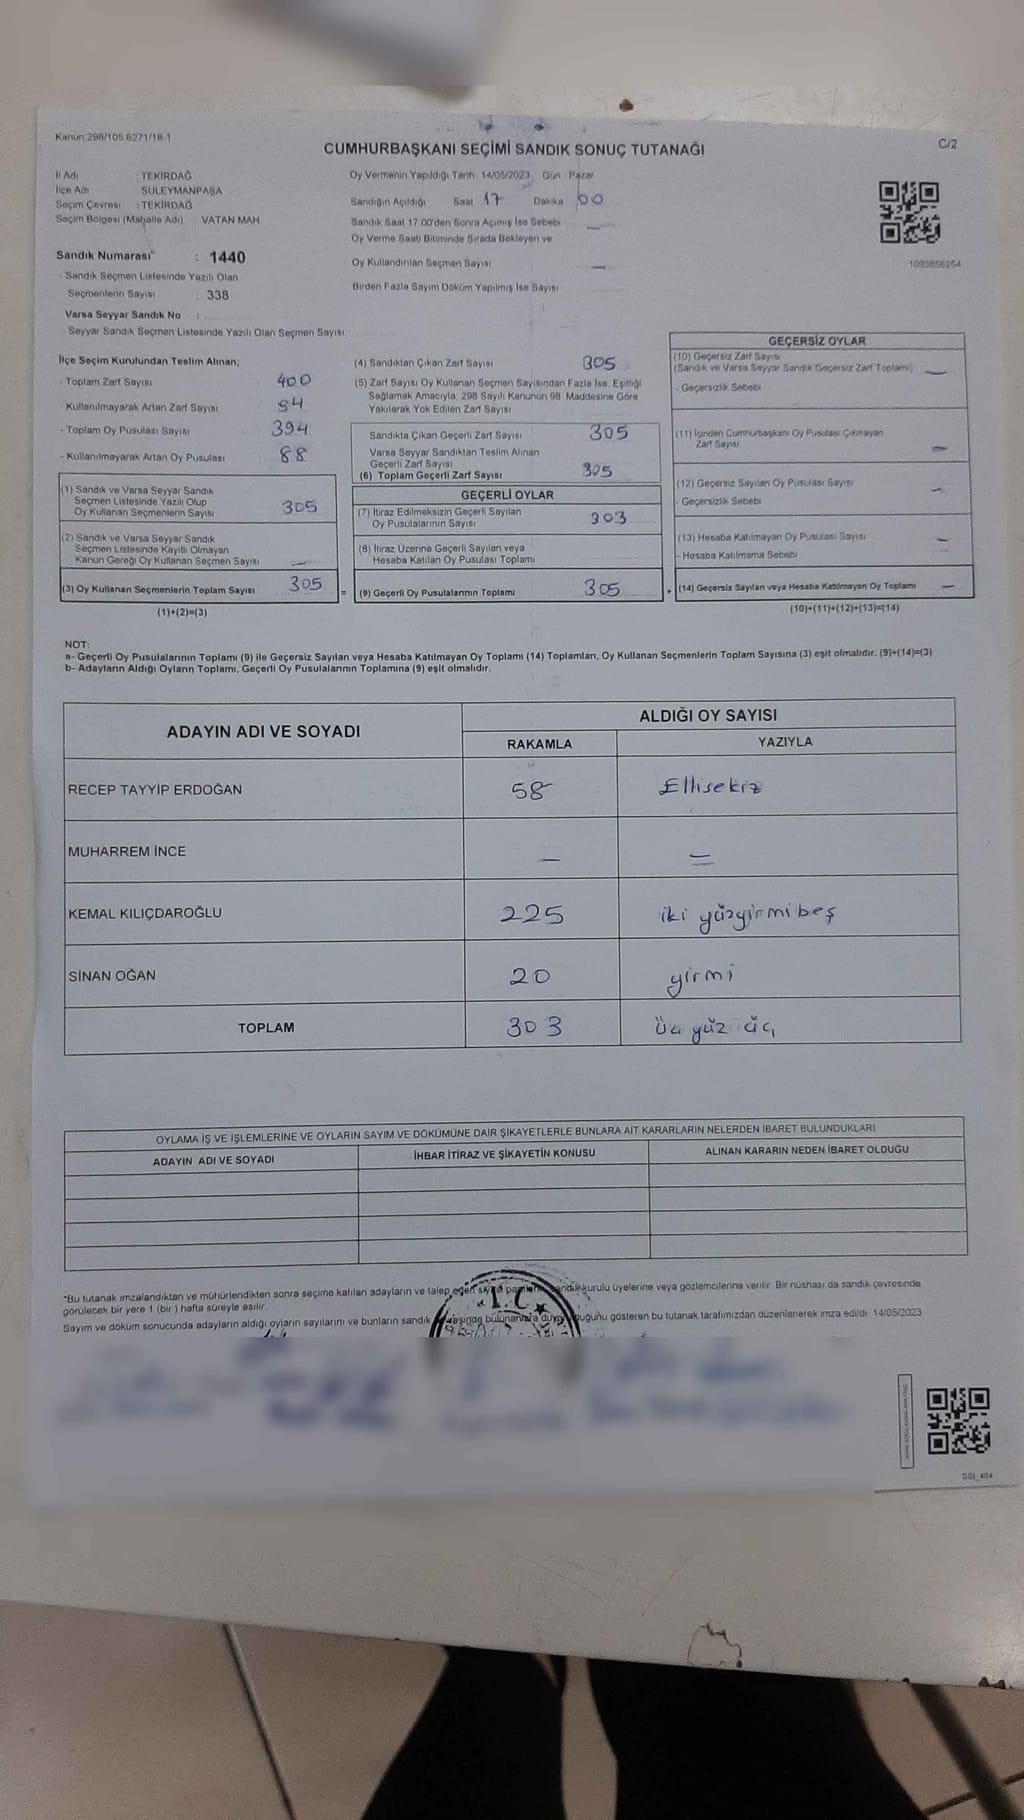 Kanun 298/105 6271/18-1
C/2
CUMHURBAŞKANI SEÇİMİ SANDIK SONUÇ TUTANAĞI
İl Adı : TEKİRDAĞ
İlçe Adı : SÜLEYMANPAŞA
Seçim Çevresi : TEKİRDAĞ
Seçim Bölgesi (Mahalle Adı) VATAN MAH.
Sandık Numarası : 1440
- Sandık Seçmen Listesinde Yazılı Olan
Seçmenlerin Sayısı : 338
Varsa Seyyar Sandık No :
- Seyyar Sandık Seçmen Listesinde Yazılı Olan Seçmen Sayısı:
Oy Vermenin Yapıldığı Tarih :14/05/2023 Gün : Pazar
Sandığın Açıldığı Saat 17 Dakika 00
Sandık Saat 17:00'den Sonra Açılmış İse Sebebi —
Oy Verme Saati Bitiminde Sırada Bekleyen ve
Oy Kullandırılan Seçmen Sayısı —
Birden Fazla Sayım Döküm Yapılmış İse Sayısı
1093856254
İlçe Seçim Kurulundan Teslim Alınan;
- Toplam Zarf Sayısı 400
- Kullanılmayarak Artan Zarf Sayısı 94
- Toplam Oy Pusulası Sayısı 394
- Kullanılmayarak Artan Oy Pusulası 88
(1) Sandık ve Varsa Seyyar Sandık
Seçmen Listesinde Yazılı Olup
Oy Kullanan Seçmenlerin Sayısı 305
(2) Sandık ve Varsa Seyyar Sandık
Seçmen Listesinde Kayıtlı Olmayan
Kanun Gereği Oy Kullanan Seçmen Sayısı —
(3) Oy Kullanan Seçmenlerin Toplam Sayısı 305
(1)+(2)=(3)
(4) Sandıktan Çıkan Zarf Sayısı 305
(5) Zarf Sayısı Oy Kullanan Seçmen Sayısından Fazla İse, Eşitliği
Sağlamak Amacıyla, 298 Sayılı Kanunun 98. Maddesine Göre
Yakılarak Yok Edilen Zarf Sayısı
Sandıkta Çıkan Geçerli Zarf Sayısı 305
Varsa Seyyar Sandıktan Teslim Alınan
Geçerli Zarf Sayısı
(6) Toplam Geçerli Zarf Sayısı 305
GEÇERLİ OYLAR
(7) İtiraz Edilmeksizin Geçerli Sayılan
Oy Pusulalarının Sayısı 303
(8) İtiraz Üzerine Geçerli Sayılan veya
Hesaba Katılan Oy Pusulası Toplamı
= (9) Geçerli Oy Pusulalarının Toplamı 305
GEÇERSİZ OYLAR
(10) Geçersiz Zarf Sayısı
(Sandık ve Varsa Seyyar Sandık Geçersiz Zarf Toplamı) —
- Geçersizlik Sebebi
(11) İçinden Cumhurbaşkanı Oy Pusulası Çıkmayan
Zarf Sayısı —
(12) Geçersiz Sayılan Oy Pusulası Sayısı —
- Geçersizlik Sebebi
(13) Hesaba Katılmayan Oy Pusulası Sayısı —
- Hesaba Katılmama Sebebi —
+ (14) Geçersiz Sayılan veya Hesaba Katılmayan Oy Toplamı —
(10)+(11)+(12)+(13)=(14)
NOT:
a- Geçerli Oy Pusulalarının Toplamı (9) ile Geçersiz Sayılan veya Hesaba Katılmayan Oy Toplamı (14) Toplamları, Oy Kullanan Seçmenlerin Toplam Sayısına (3) eşit olmalıdır. (9)+(14)=(3)
b- Adayların Aldığı Oyların Toplamı, Geçerli Oy Pusulalarının Toplamına (9) eşit olmalıdır.
ADAYIN ADI VE SOYADI ALDIĞI OY SAYISI
RAKAMLA YAZIYLA
RECEP TAYYİP ERDOĞAN 58 Ellisekiz
MUHARREM İNCE — =
KEMAL KILIÇDAROĞLU 225 iki yüzyirmibeş
SİNAN OĞAN 20 yirmi
TOPLAM 303 üç yüz üç
OYLAMA İŞ VE İŞLEMLERİNE VE OYLARIN SAYIM VE DÖKÜMÜNE DAİR ŞİKAYETLERLE BUNLARA AİT KARARLARIN NELERDEN İBARET BULUNDUKLARI
ADAYIN ADI VE SOYADI İHBAR İTİRAZ VE ŞİKAYETİN KONUSU ALINAN KARARIN NEDEN İBARET OLDUĞU
*Bu tutanak imzalandıktan ve mühürlendikten sonra seçime katılan adayların ve talep eden siyasi partilerin sandık kurulu üyelerine veya gözlemcilerine verilir. Bir nüshası da sandık çevresinde
görülecek bir yere 1 (bir ) hafta süreyle asılır.
Sayım ve döküm sonucunda adayların aldığı oyların sayılarını ve bunların sandık çevresinde bulunanlara duyurulduğunu gösteren bu tutanak tarafımızdan düzenlenerek imza edildi. 14/05/2023
T.C.
SSI_404